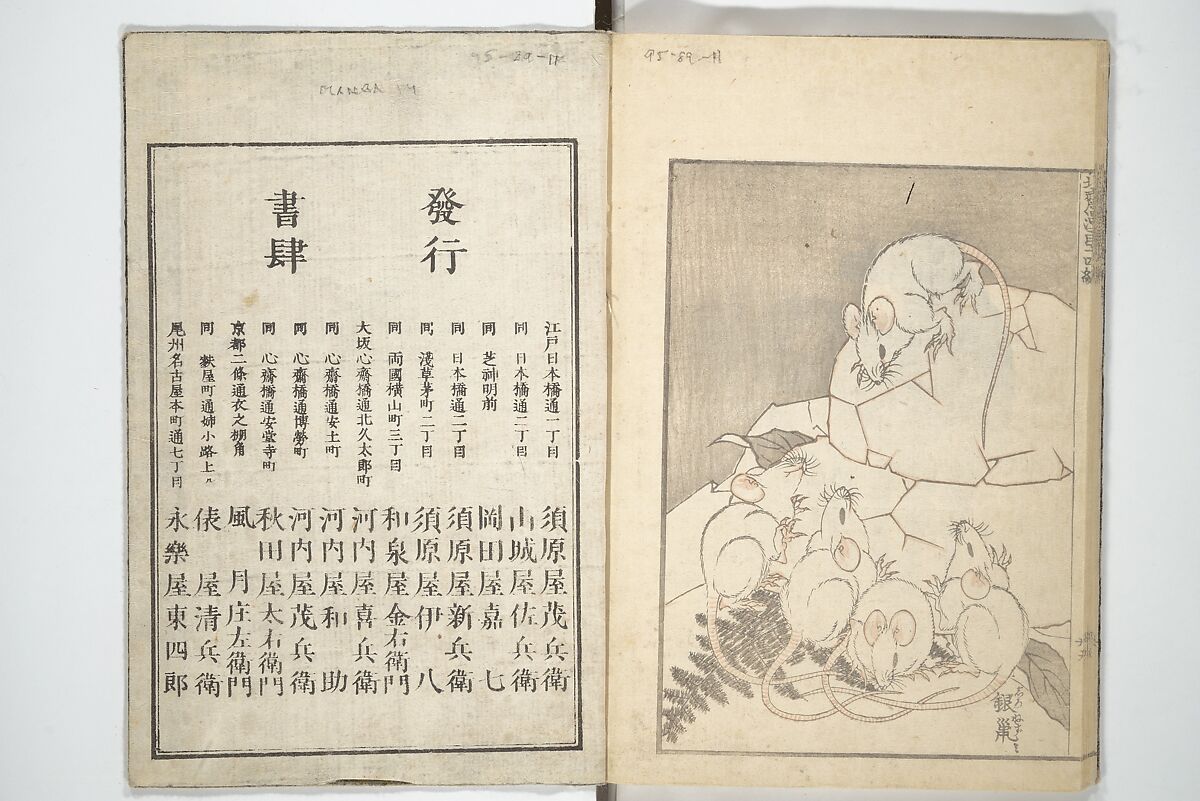 95-89-11
MANGA 14
95-89-11
發行
書肆
江戸日本橋通一丁目 須原屋茂兵衛
同 日本橋通二丁目 山城屋佐兵衛
同 芝神明前 岡田屋嘉七
同 日本橋通二丁目 須原屋新兵衛
同 淺草茅町二丁目 須原屋伊八
同 両國横山町三丁目 和泉屋金右衛門
大坂心齋橋通北久太郎町 河内屋喜兵衛
同 心齋橋通安土町 河内屋和助
同 心齋橋通博勞町 河内屋茂兵衛
同 心齋橋通安堂寺町 秋田屋太右衛門
京都二條通衣之棚角 風月庄左衛門
同 麩屋町通姉小路上ル 俵屋清兵衛
尾州名古屋本町通七丁目 永樂屋東四郎
銀